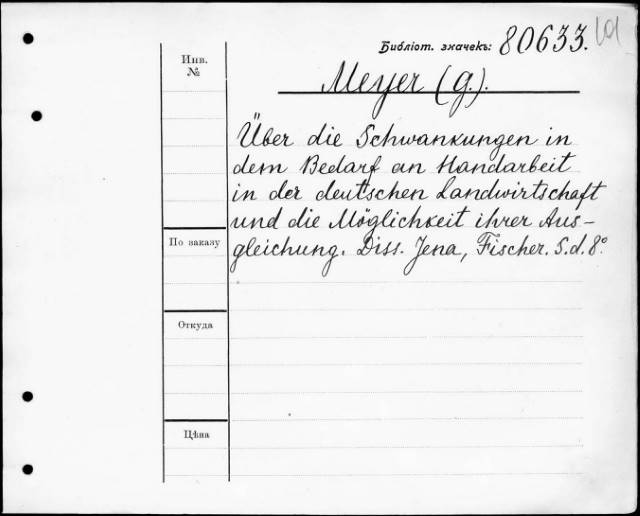 Библіот. значекъ: 80633.
Инв.
№
Meyer (G.).
Über die Schwankungen in
dem Bedarf an Handarbeit
in der deutschen Landwirtschaft
und die Möglichkeit ihrer Aus-
По заказу
gleichung. Diss. Jena, Fischer. S.d. 8°.
Откуда
Цѣна